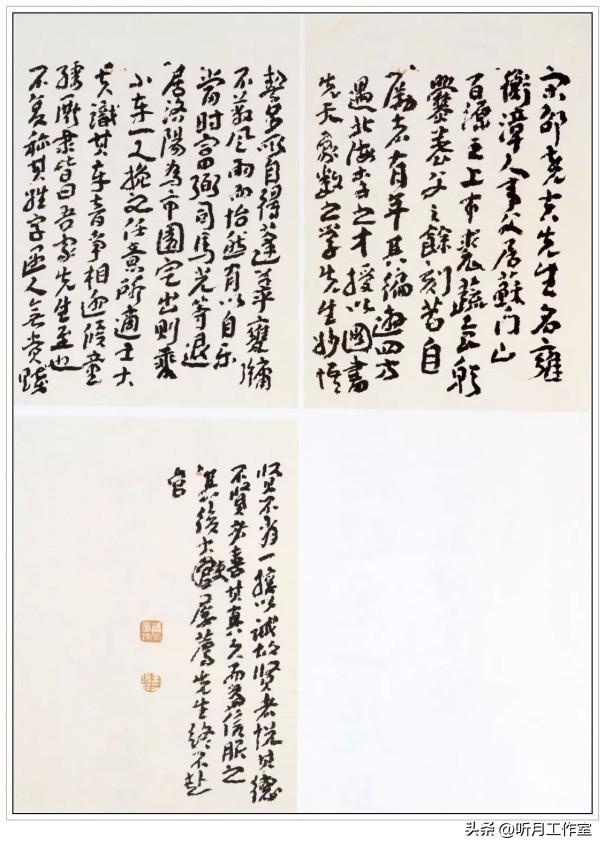 宋邵堯夫先生名雍
衡漳人事父居蘇門山
百源之上布裘蔬食躬
爨養父之餘刻苦自
勵者有年其徧遊四方
遇北海李之才授以圖書
先天象數之學先生妙悟
契多所自得蓬蓽甕牖
不蔽风雨而怡然有以自乐
當时富弼司馬光等退
居洛陽為市園宅出則乘
小车一人挽之任意所適士大
夫識其车音爭相迎候童
孺廝隶皆曰吾家先生至也
不复稱其姓字遇人無贵賤
贤不肖一接以诚故贤者悦其德
不贤者喜其真久而益信服之
其後大屢薦先生終不赴
官
头条 @听月工作室